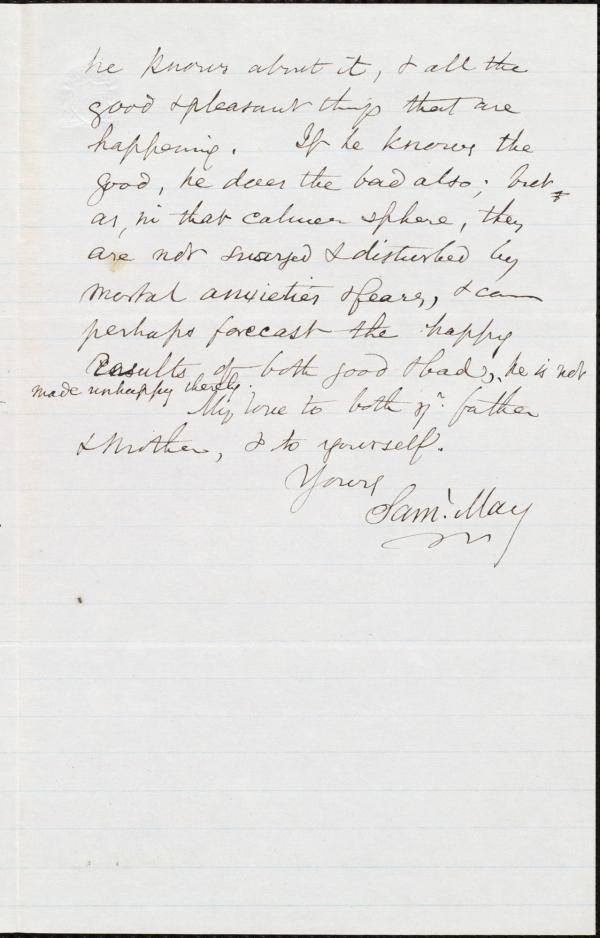 he knows about it, & all the
good & pleasant things that are
happening. If he knows the
good, he does the bad also; but
as, in that calmer sphere, they
are not swayed & disturbed by
mortal anxieties & fears, & can
perhaps forecast the happy
results of both good & bad, he is not
made unhappy thereby.
My love to both yr. father
& mother, & to yourself.
Yours
Saml. May